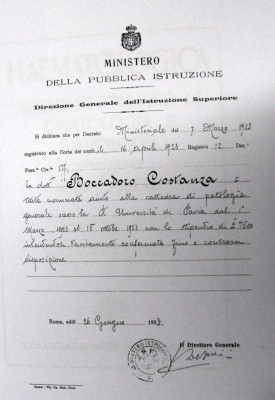 MINISTERO
DELLA PUBBLICA ISTRUZIONE
Direzione Generale dell'Istruzione Superiore
Si dichiara che per Decreto Ministeriale del 7 Marzo 1923
registrato alla Corte dei conti il 16 aprile 1923 Registro 12 Dec.
Pers.° Civ.°
la dott Boccadoro Costanza è
stata nominata aiuto alla cattedra di patologia
generale presso la R Università di Pavia dal 1°
Marzo 1923 al 15 ottobre 1923 con lo stipendio di £
intendendosi tacitamente confermata fino a contraria
disposizione
Roma, addì 26 Giugno 1923
Il Direttore Generale